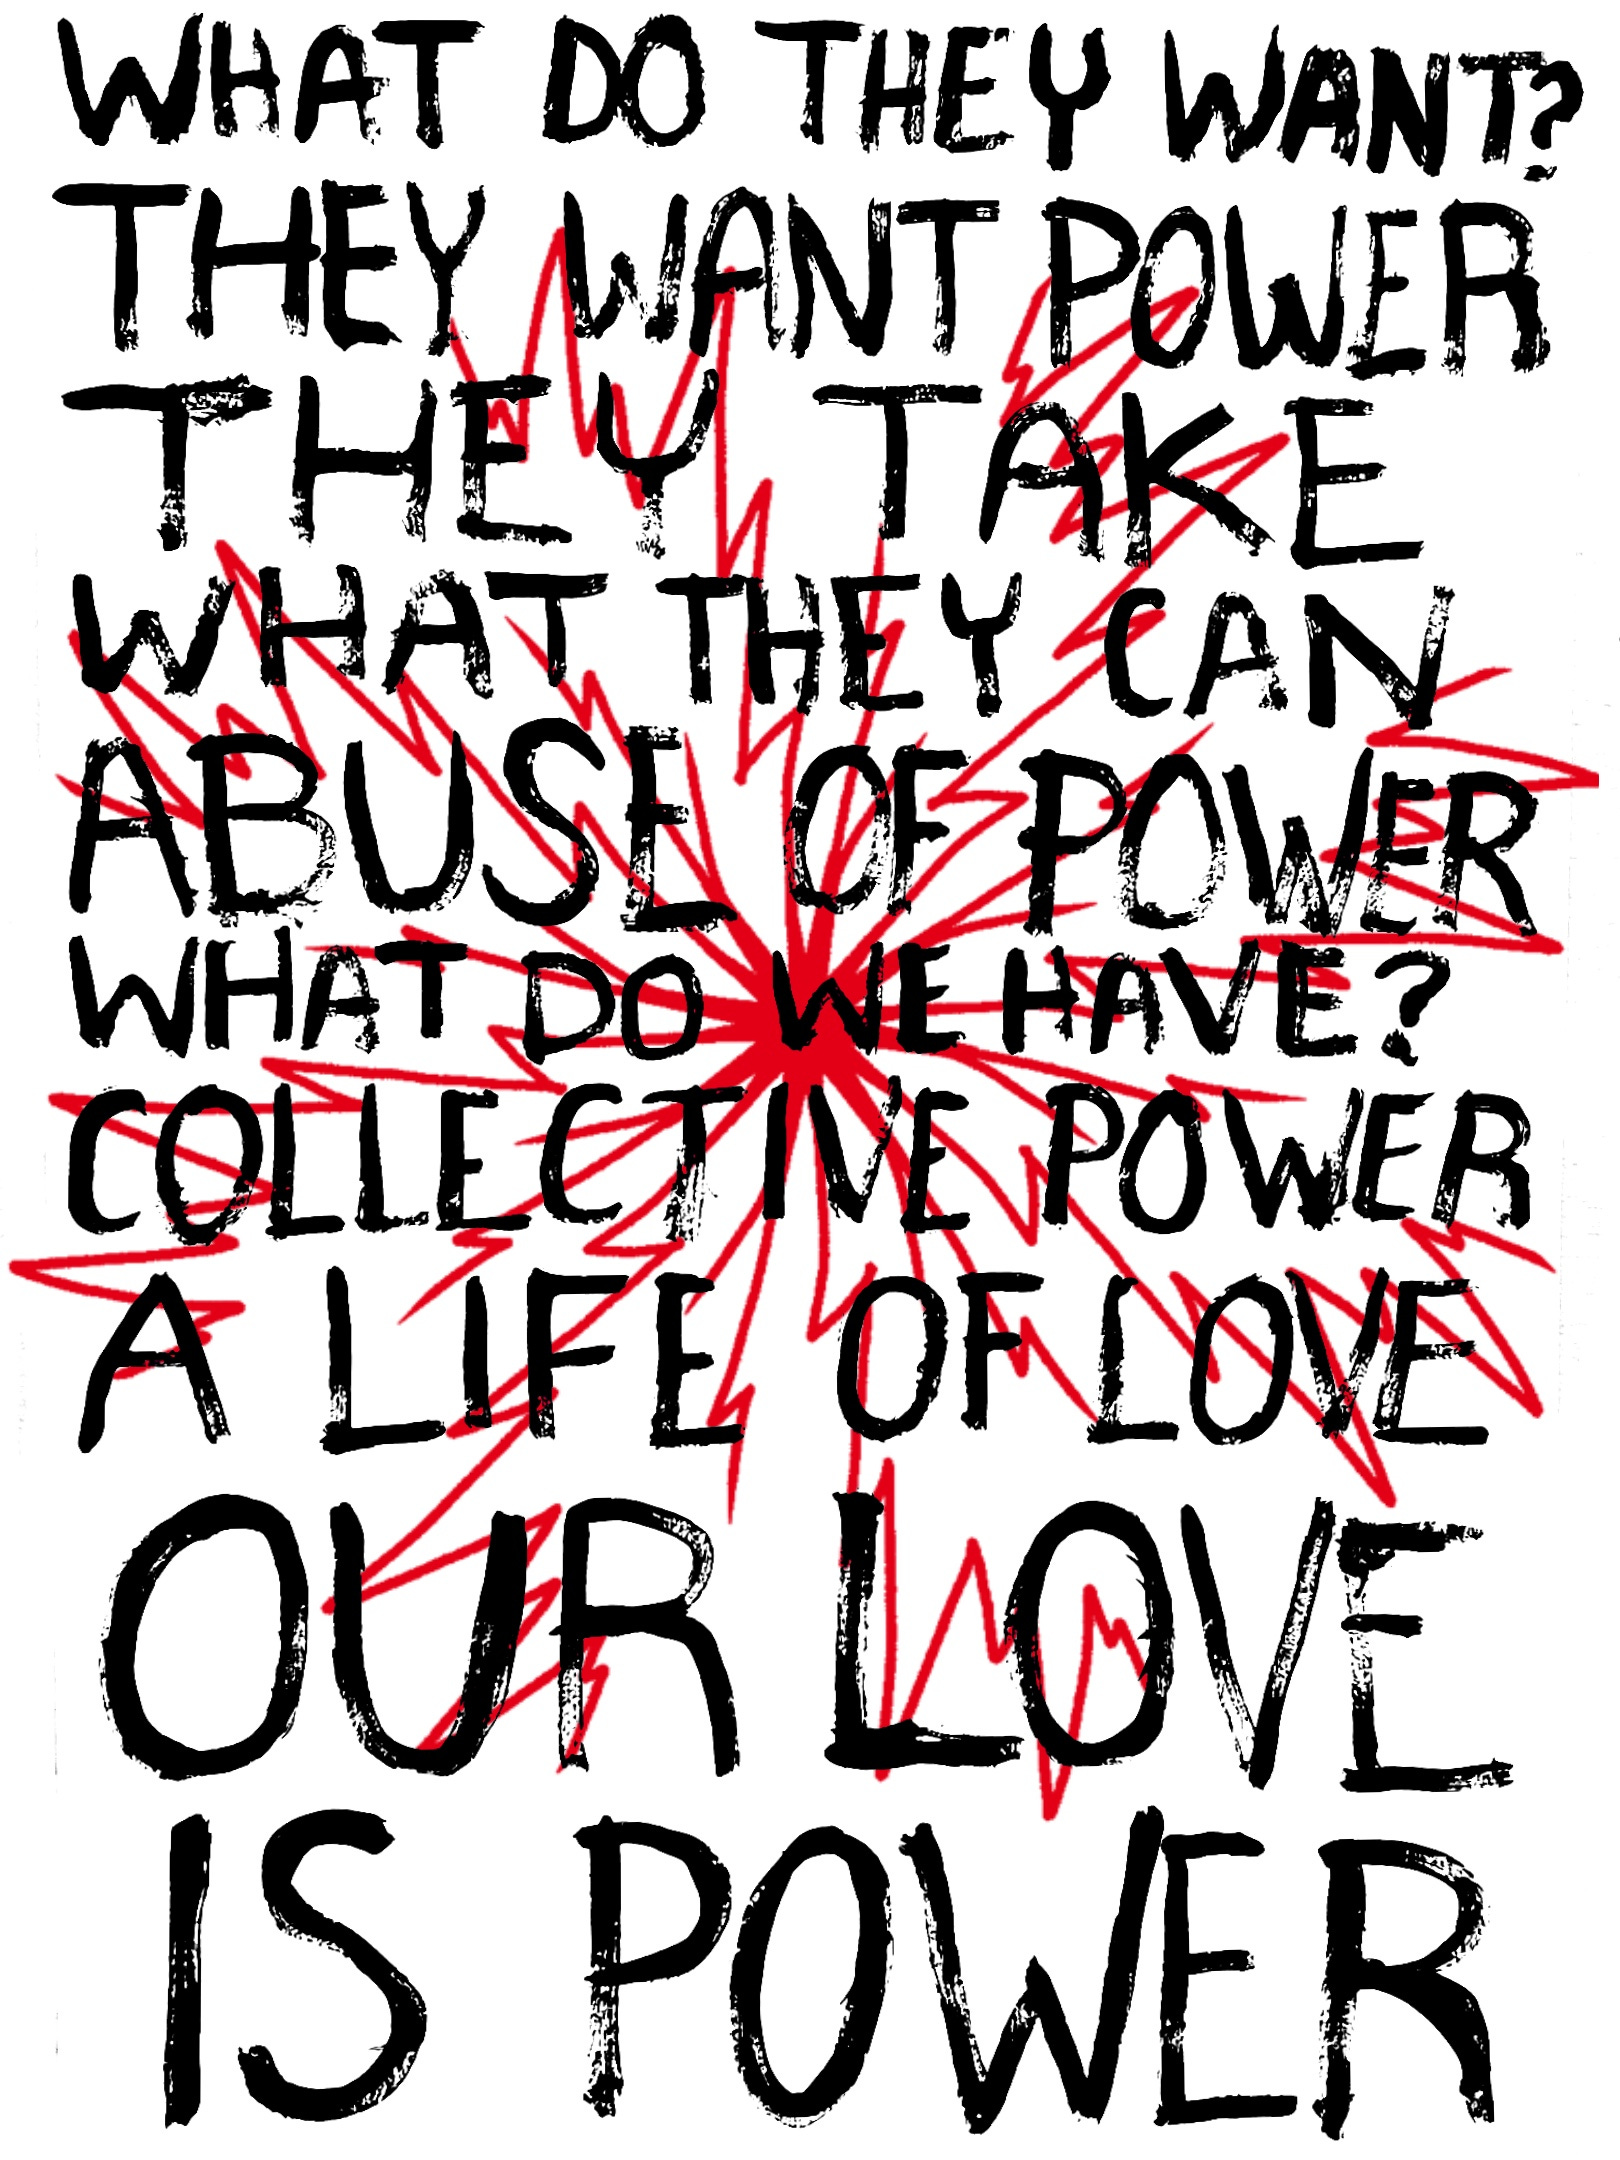 WHAT DO THEY WANT?
THEY WANT POWER
THEY TAKE
WHAT THEY CAN
ABUSE OF POWER
WHAT DO WE HAVE?
COLLECTIVE POWER
A LIFE OF LOVE
OUR LOVE
IS POWER